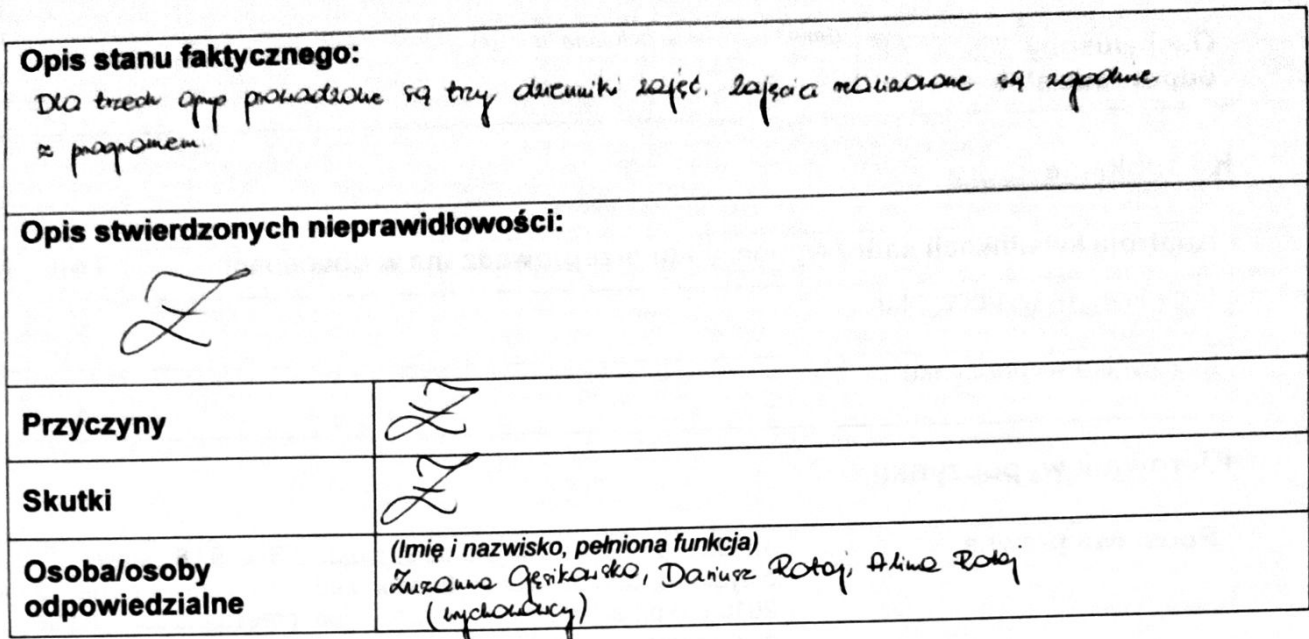 Opis stanu faktycznego:
Dla trzech grup prowadzone są trzy dzienniki zajęć. Zajęcia realizowane są zgodnie
z programem.
Opis stwierdzonych nieprawidłowości:
Przyczyny
Skutki
Osoba/osoby
odpowiedzialne
(Imię i nazwisko, pełniona funkcja)
Zuzanna Gęsikowska, Dariusz Rataj, Alina Rataj
(wychowawcy)